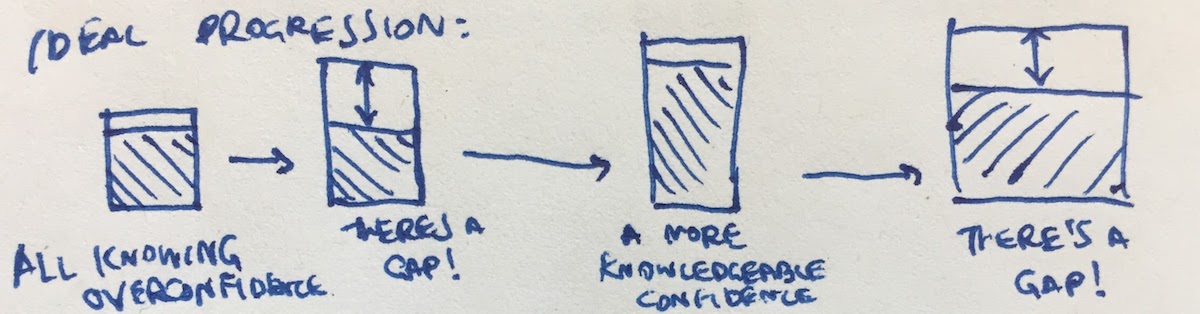 IDEAL PROGRESSION:
ALL KNOWING
OVERCONFIDENCE
THERES A
GAP!
A MORE
KNOWLEDGEABLE
CONFIDENCE
THERE'S A
GAP!